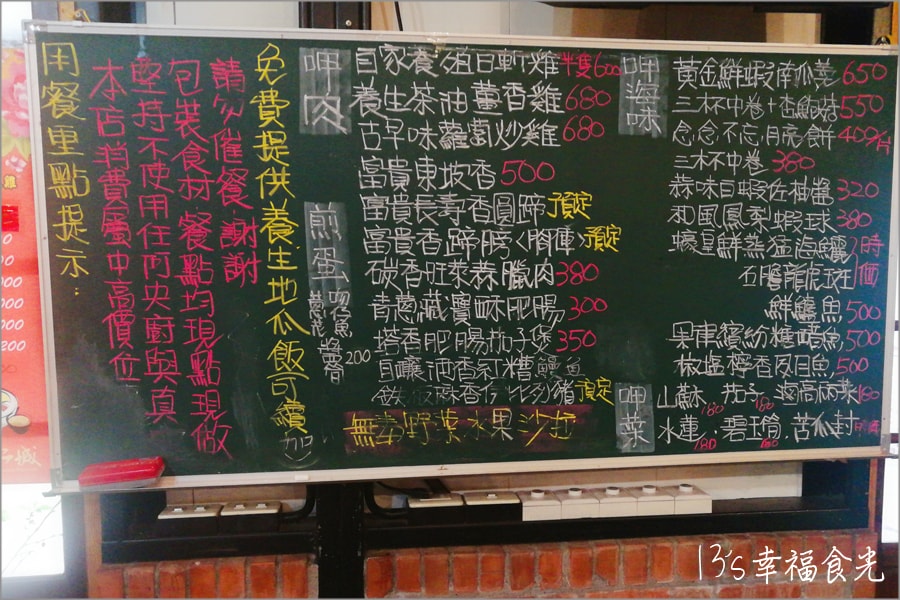 用餐重點提示:
本店消費屬中高價位
堅持不使用任何央廚與真
包裝食材餐點均現點現做
請勿催餐,謝謝
免費提供養生地瓜飯可續加
呷肉
自家養殖日斬雞 半隻600
養生茶油薑香雞 680
古早味蘿蔔炒雞 680
富貴東坡香 500
富貴長壽香圓蹄 預定
富貴香蹄膀〈腳庫〉預定
碳香旺萊蒜臘肉 380
青蔥藏寶酥肥腸 300
塔香肥腸茄子煲 350
自釀沌香紅糟鰻魚
預定
無毒野菜水果沙拉
煎蛋
吻仔魚
蔥花
200
呷海味
黃金鮮蝦南瓜羹 650
三杯中卷+杏鮑菇 550
念念不忘月亮餅 409/片
三杯中卷 380
蒜味白蝦佐柚醬 320
和風鳳梨蝦球 380
蠔皇鮮蒸猛海鱺 時價
石膽龍虎斑
鮮鱸魚 500
果律繽紛糖醋魚 500
椒鹽檸香皮目魚 500
呷菜
山蘇 180 茄子 160 澎高麗菜 180
水蓮 180 碧玉筍 160 苦瓜封
13's幸福食光